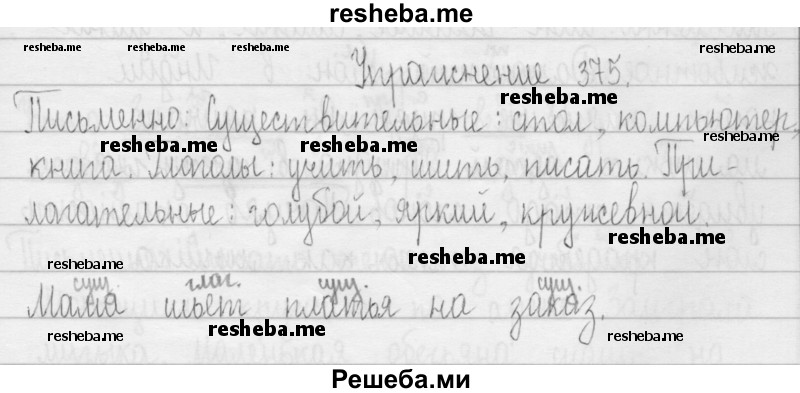 resheba.me
resheba.me resheba.me resheba.me resheba.me
Упражнение 375.
resheba.me
Письменно. Существительные: стол, компьютер,
resheba.me resheba.me resheba.me
книга. Глаголы: учить, шить, писать. При-
лагательные: голубой, яркий, кружевной.
resheba.me
resheba.me resheba.me
сущ. глаг. сущ. сущ.
Мама шьет платья на заказ.
resheba.me resheba.me resheba.me
Решеба.ми